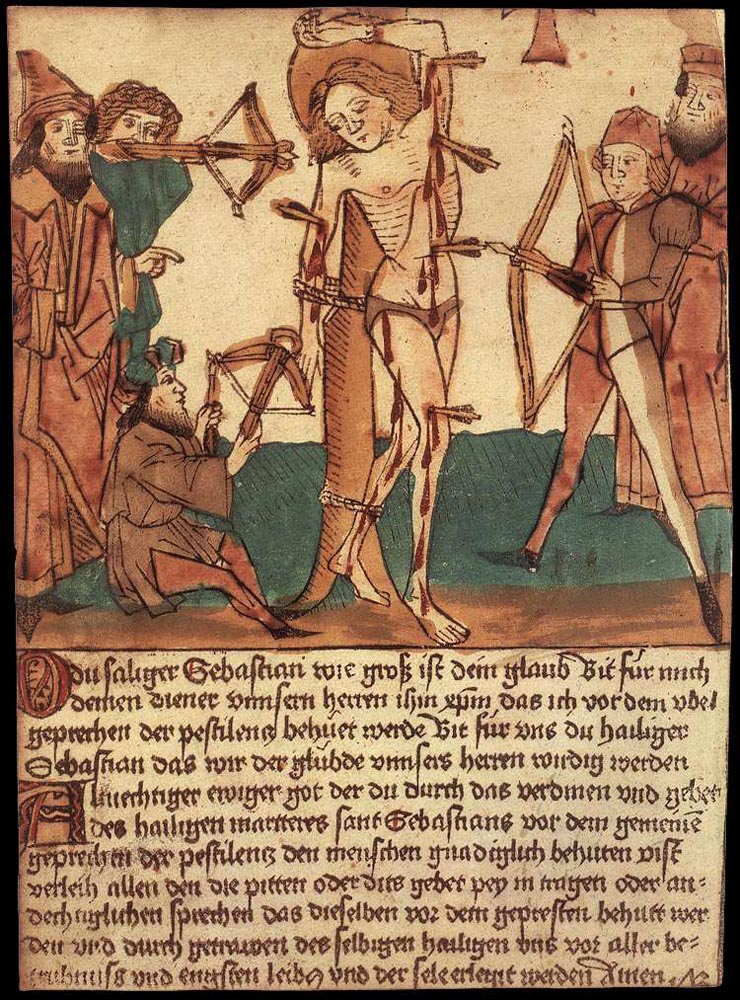 O du saliger Sebastian wie groß ist dein glaub Bit für mich
deinen diener vnnsern herren ihm xpm das ich vor dem vbel
geprechen der pestilentz behüet werde Bit für vns du hailiger
Sebastian das wir der glübde vnnsers herren wirdig werden
Almechtiger ewiger got der du durch das verdinen vnd gebet
des hailigen martrers sant Sebastians vor dem gemeine
geprechen der pestilentz den menschen gnadiglich behüten pist
verleih allen den die pitten oder dits gebet pey in tragen oder an-
dechtiglichen sprechen das dieselben vor dem gepresten behütt wer
den vnd durch getrawen des selbigen hailigen vns vor aller be-
trubnuss vnd engsten leibs vnd der sele erlegit werden Amen